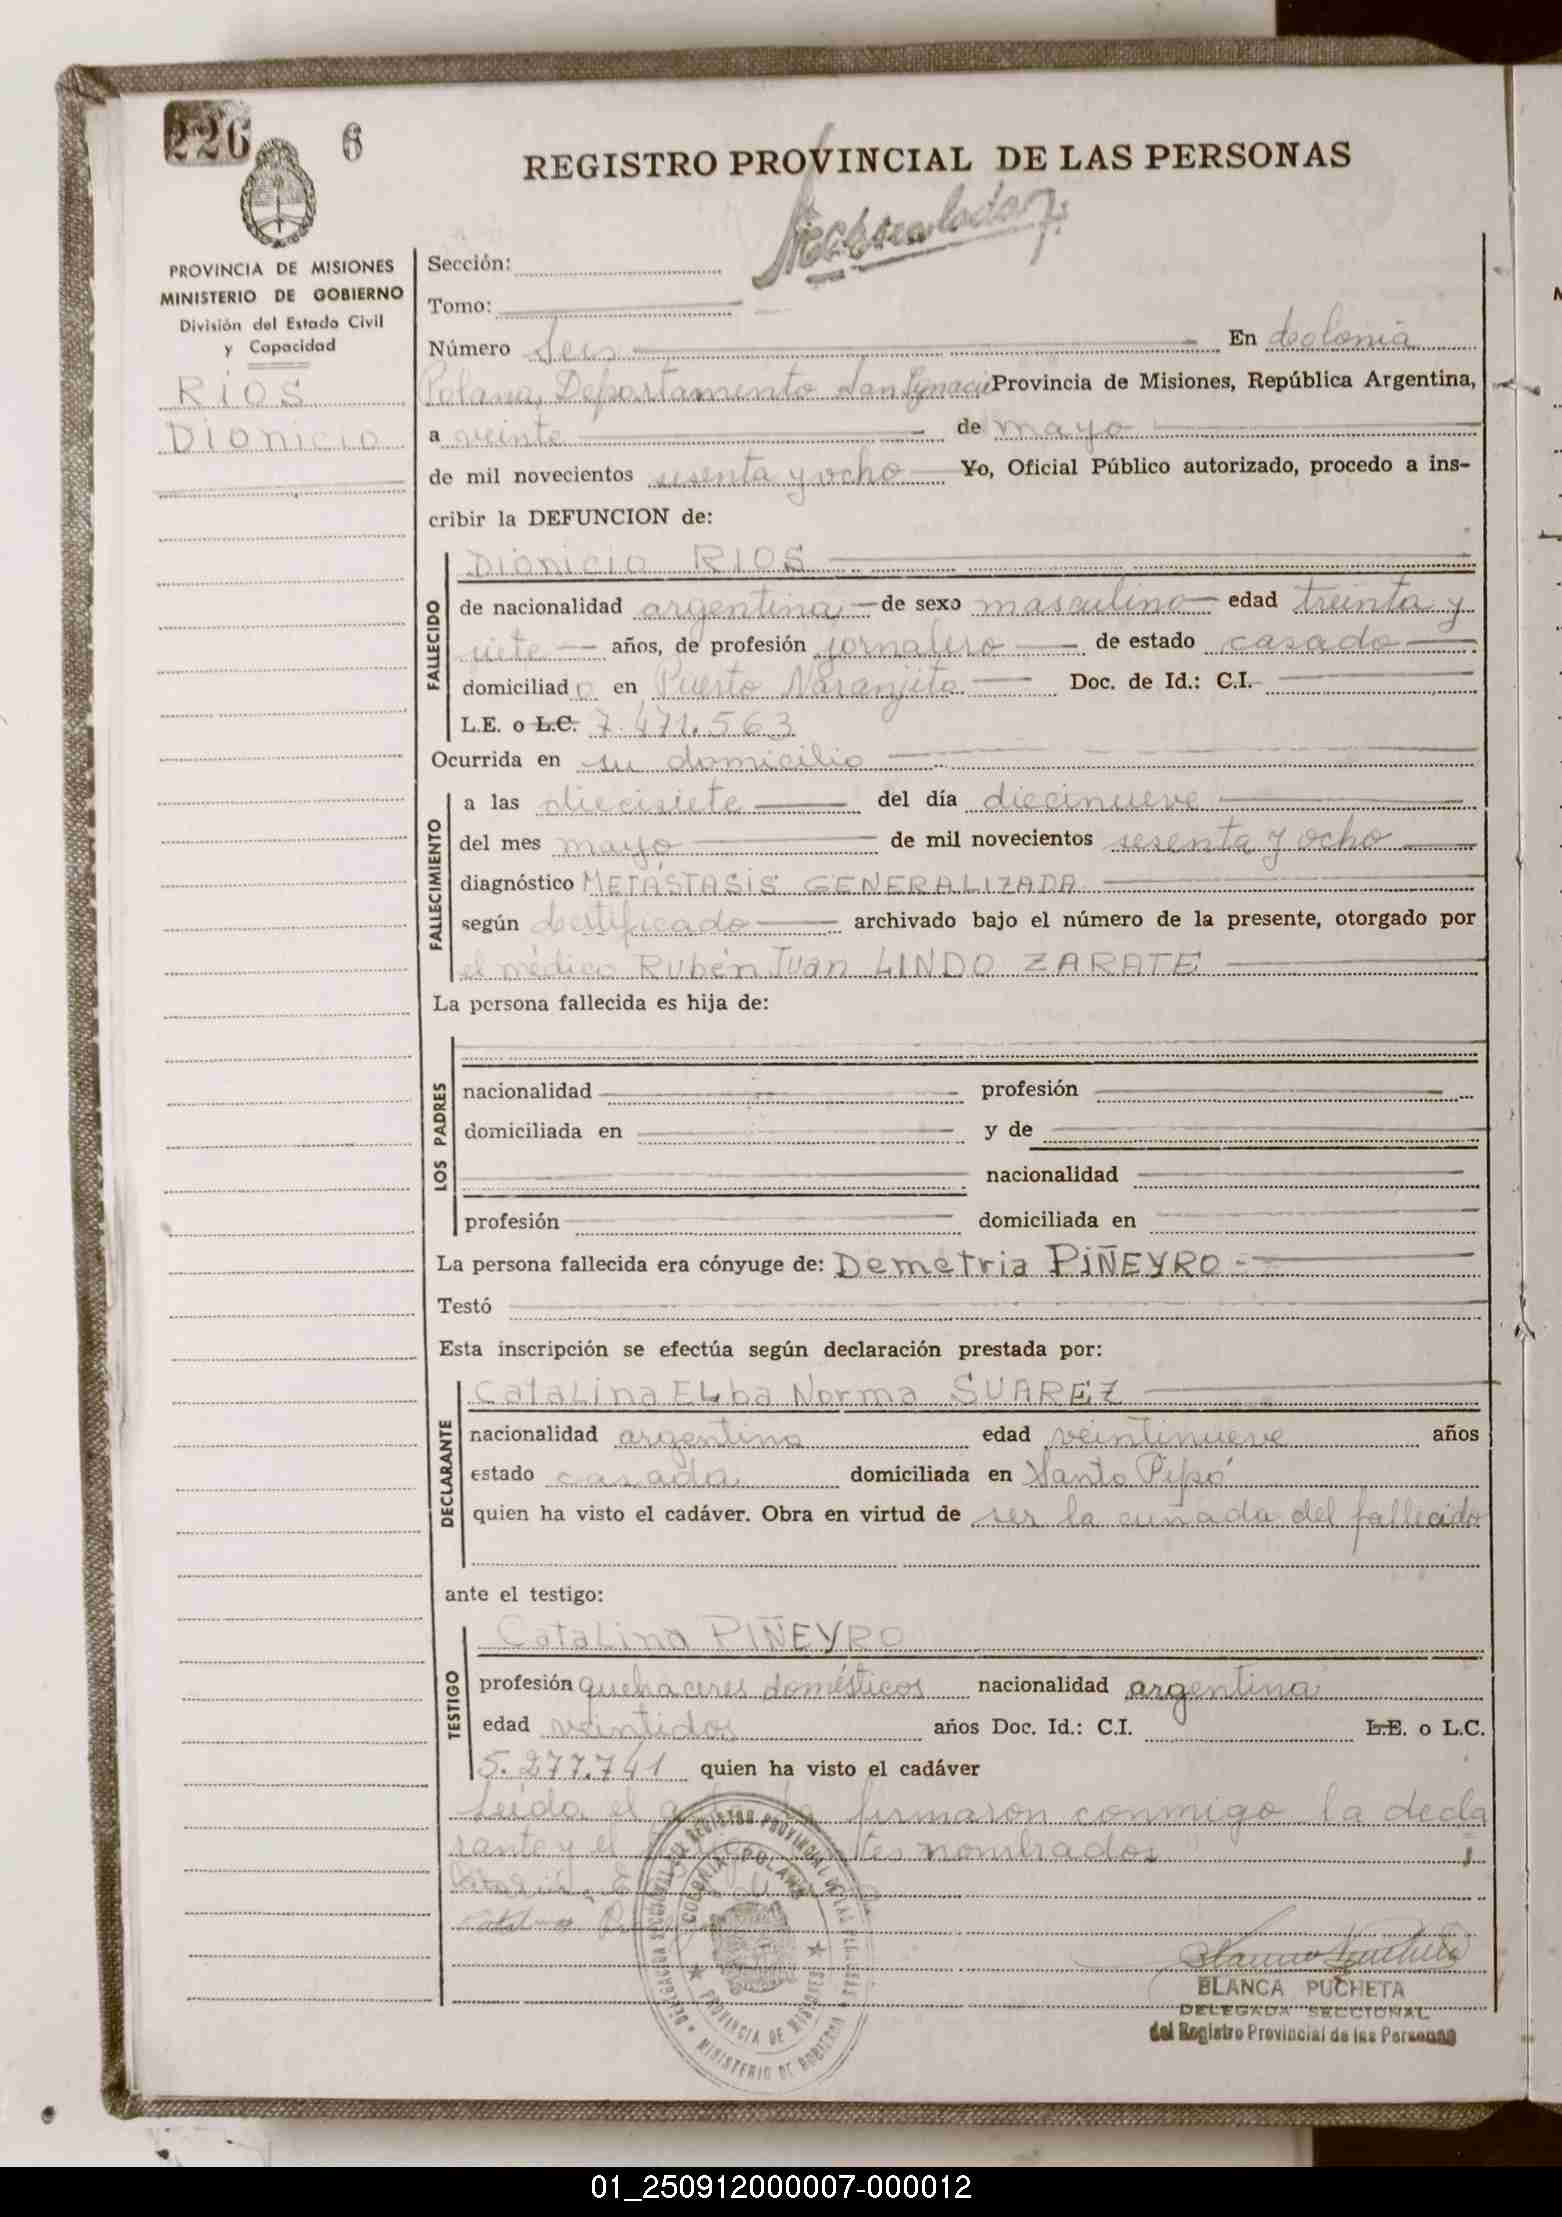 226 6
REGISTRO PROVINCIAL DE LAS PERSONAS
PROVINCIA DE MISIONES
MINISTERIO DE GOBIERNO
División del Estado Civil
y Capacidad
RIOS
Dionicio
Sección:
Tomo:
Número Seis En Colonia
Polana, Departamento San Ignacio Provincia de Misiones, República Argentina,
a veinte de mayo
de mil novecientos sesenta y ocho Yo, Oficial Público autorizado, procedo a ins-
cribir la DEFUNCION de:
FALLECIDO
Dionicio RIOS
de nacionalidad argentina de sexo masculino edad treinta y
siete años, de profesión jornalero de estado casado
domiciliado en Puerto Naranjito Doc. de Id.: C.I.
L.E. o L.C. 7.471.563
Ocurrida en su domicilio
FALLECIMIENTO
a las diecisiete del día diecinueve
del mes mayo de mil novecientos sesenta y ocho
diagnóstico METÁSTASIS GENERALIZADA
según certificado archivado bajo el número de la presente, otorgado por
el médico Rubén Juan LINDO ZARATE
La persona fallecida es hija de:
LOS PADRES
nacionalidad profesión
domiciliada en y de
nacionalidad
profesión domiciliada en
La persona fallecida era cónyuge de: Demetria PIÑEYRO
Testó
Esta inscripción se efectúa según declaración prestada por:
DECLARANTE
Catalina Elba Norma SUAREZ
nacionalidad argentina edad veintinueve años
estado casada domiciliada en Santo Pipó
quien ha visto el cadáver. Obra en virtud de ser la cuñada del fallecido
ante el testigo:
TESTIGO
Catalina PIÑEYRO
profesión quehaceres domésticos nacionalidad argentina
edad veintidos años Doc. Id.: C.I. L.E. o L.C.
5.277.741 quien ha visto el cadáver
Leída el acta la firmaron conmigo la decla
rante y el nombrados
COLONIA POLANA
PROVINCIA DE MISIONES
MINISTERIO DE GOBIERNO
BLANCA PUCHETA
DELEGADA SECCIONAL
del Registro Provincial de las Personas
01_250912000007-000012